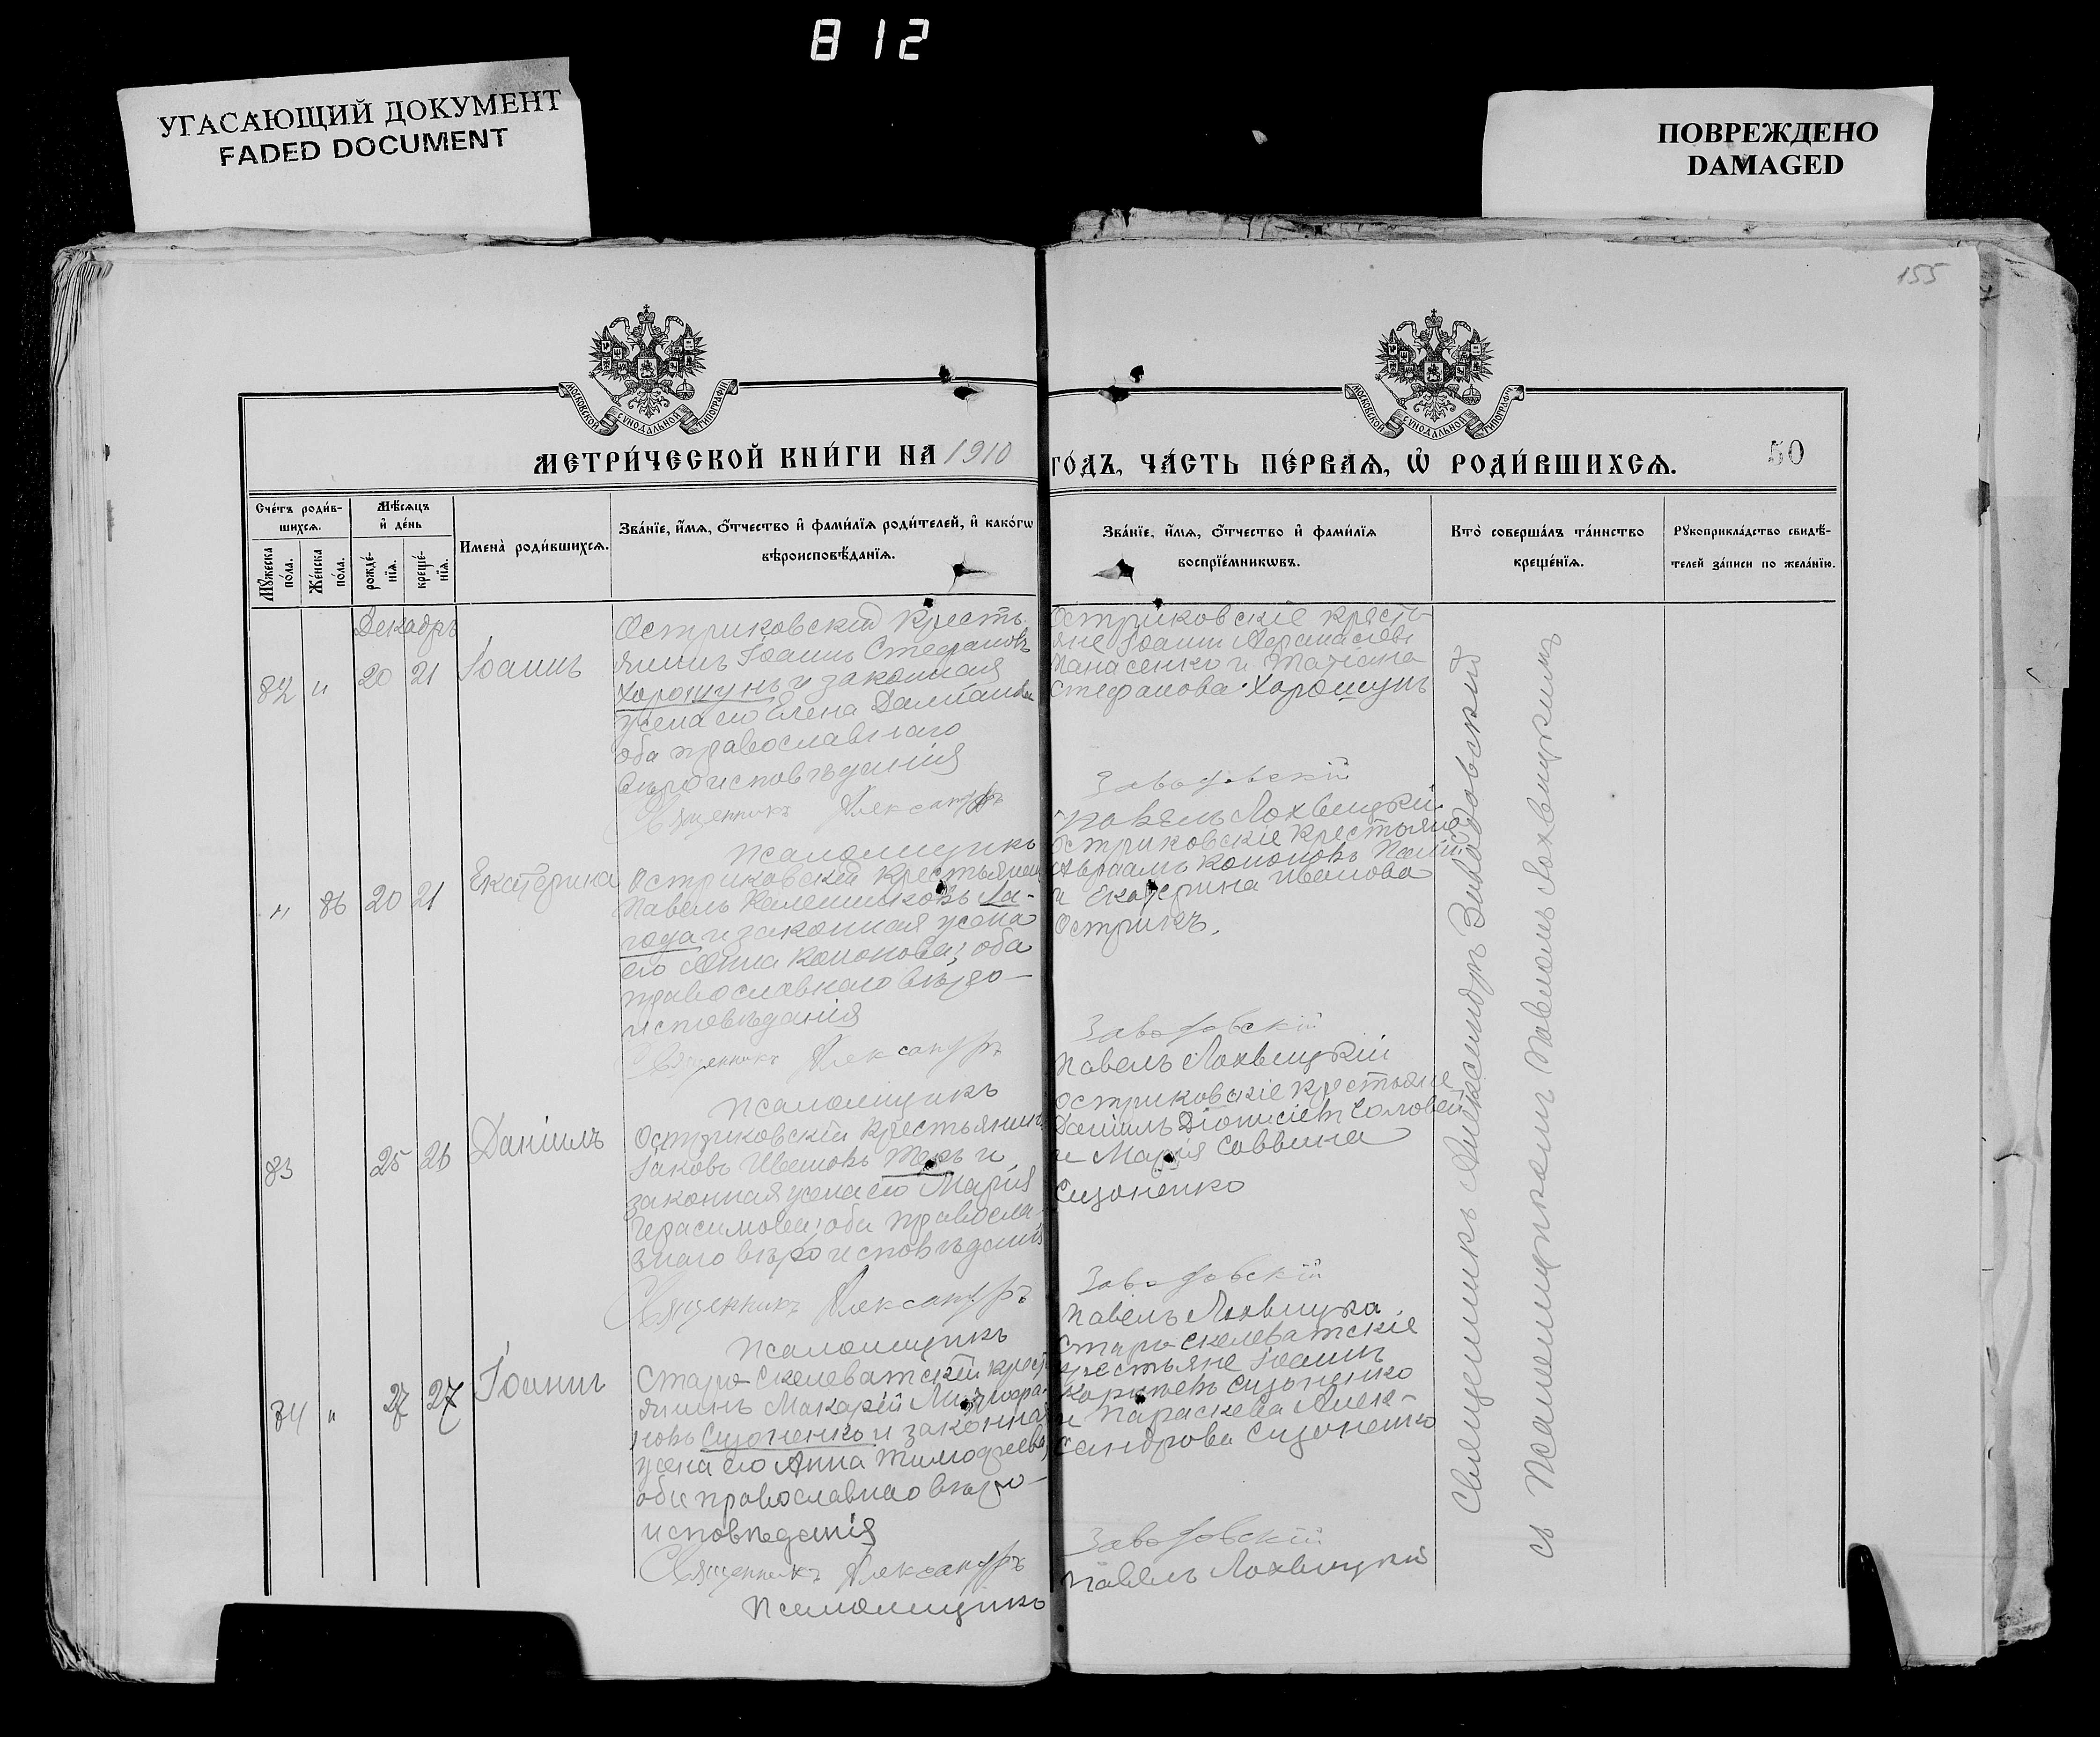 812
УГАСАЮЩИЙ ДОКУМЕНТ
FADED DOCUMENT
ПОВРЕЖДЕНО
DAMAGED
155
МОСКОВСКОЙ СѴНОДАЛЬНОЙ ТИПОГРАФІИ
МОСКОВСКОЙ СѴНОДАЛЬНОЙ ТИПОГРАФІИ
МЕТРИ́ЧЕСКОЙ КНИ́ГИ НА 1910 ГО́ДЪ, ЧА́СТЬ ПЕ́РВАѦ, Ѡ҆ РОДИ́ВШИХСѦ.
50
Сче́тъ роди́в-
шихсѧ.
Мꙋ́жеска
по́ла.
Же́нска
по́ла.
Мѣ́сѧцъ
и҆ де́нь
рожде́-
нїѧ.
креще́-
нїѧ.
Имена̀ роди́вшихсѧ.
Зва́нїе, и҆́мѧ, ѻ҆́тчество и҆ фами́лїѧ роди́телей, и҆ како́гѡ
вѣроисповѣ́данїѧ.
Зва́нїе, и҆́мѧ, ѻ҆́тчество и҆ фами́лїѧ
воспрїе́мникѡвъ.
Кто̀ соверша́лъ та́инство
креще́нїѧ.
Рꙋкоприкла́дство свидѣ́-
телей за́писи по жела́нїю.
Декабрь
82 " 20 21 Іоаннъ
Остриковскій кресть-
янинъ Іоаннъ Стефановъ
Хорошунъ и законная
жена его Елена Даміанова
оба православнаго
вѣроисповѣданія
Священникъ Александръ
Псаломщикъ
Остриковскіе кресть-
яне Іоаннъ Афанасіевъ
Панасенко и Татіана
Стефанова Хорошунъ
Заводовскій
Павелъ Лохвицкій
" 86 20 21 Екатерина
Остриковскій крестьянинъ
Павелъ
Ла-
года и законная жена
его Анна Кононова; оба
православнаго вѣро-
исповѣданія
Священникъ Александръ
Псаломщикъ
Остриковскіе крестьяне
Авраамъ Кононовъ
и Екатерина Иванова
Острикъ.
Заводовскій
Павелъ Лохвицкій
83 25 26 Даніилъ
Остриковскій крестьянинъ
Іаковъ Ивановъ и
законная жена его Марія
Герасимова; оба правосла-
внаго вѣроисповѣданія
Священникъ Александръ
Псаломщикъ
Остриковскіе крестьяне
Даніилъ Діонисіевъ Соловей
и Марія Саввина
Сизоненко
Заводовскій
Павелъ Лохвицкій
84 " 27 27 Іоаннъ
Старо-Скелеватскій крест-
янинъ Макарій Митрофа-
новъ Сизоненко и законная
жена его Анна Тимофеева,
оба православнаго вѣро-
исповѣданія
Священникъ Александръ
Псаломщикъ
Старо-Скелеватскіе
крестьяне Іоаннъ
Сизоненко
и Параскева Алек-
сандрова Сизоненко
Заводовскій
Павелъ Лохвицкій
Священникъ Александръ Заводовскій
съ Псаломщикомъ Павломъ Лохвицкимъ